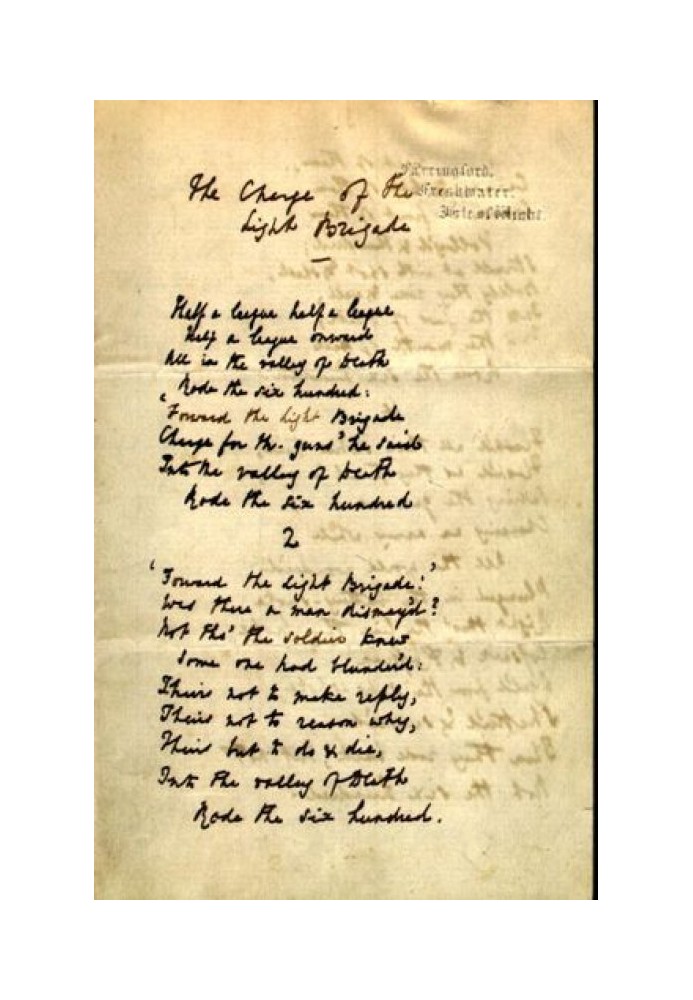 Farringford,
Freshwater,
Isle of Wight.
The Charge of the
Light Brigade
Half a league half a league
Half a league onward
All in the valley of Death
Rode the six hundred:
'Forward the Light Brigade
Charge for the guns' he said
Into the valley of Death
Rode the six hundred
2
'Forward the Light Brigade!'
Was there a man dismay'd?
Not tho' the soldier knew
Some one had blunder'd:
Theirs not to make reply,
Theirs not to reason why,
Theirs but to do & die,
Into the valley of Death
Rode the six hundred.